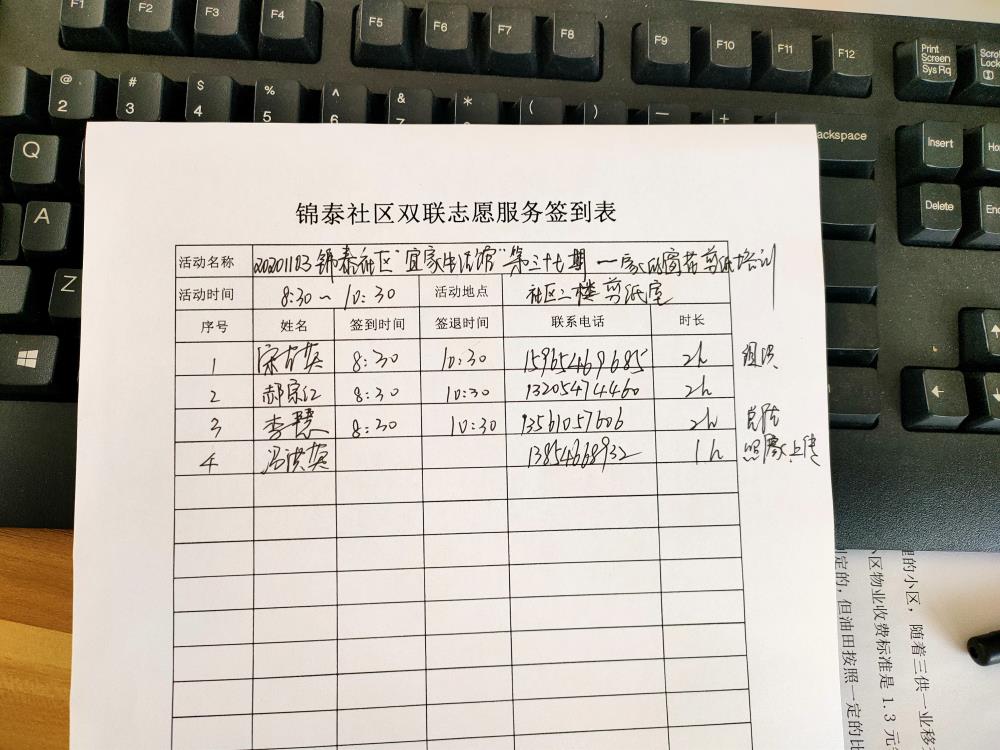 F1 F2 F3 F4 F5 F6 F7 F8 F9 F10 F11 F12 Print Screen SysRq
@ 2 # 3 $ 4 % 5 ^ 6 & 7 * ( ) — +
ackspace Insert
Q
Delete
A
Z
锦泰社区双联志愿服务签到表
活动名称 20201103锦泰社区"宜家生活馆"第三十七期一 窗花剪纸培训
活动时间 8:30~10:30 活动地点 社区二楼剪纸室
序号 姓名 签到时间 签退时间 联系电话 时长
1 8:30 10:30 15965469685 2h 组织
2 郝宗江 8:30 10:30 13205474460 2h
3 李慧 8:30 10:30 13561057606 2h
4 冯洪英 13854668932 1h 照像上传
理的小区，随着三供一业移
小区物业收费标准是 1.3 元
定的，但油田按照一定的比